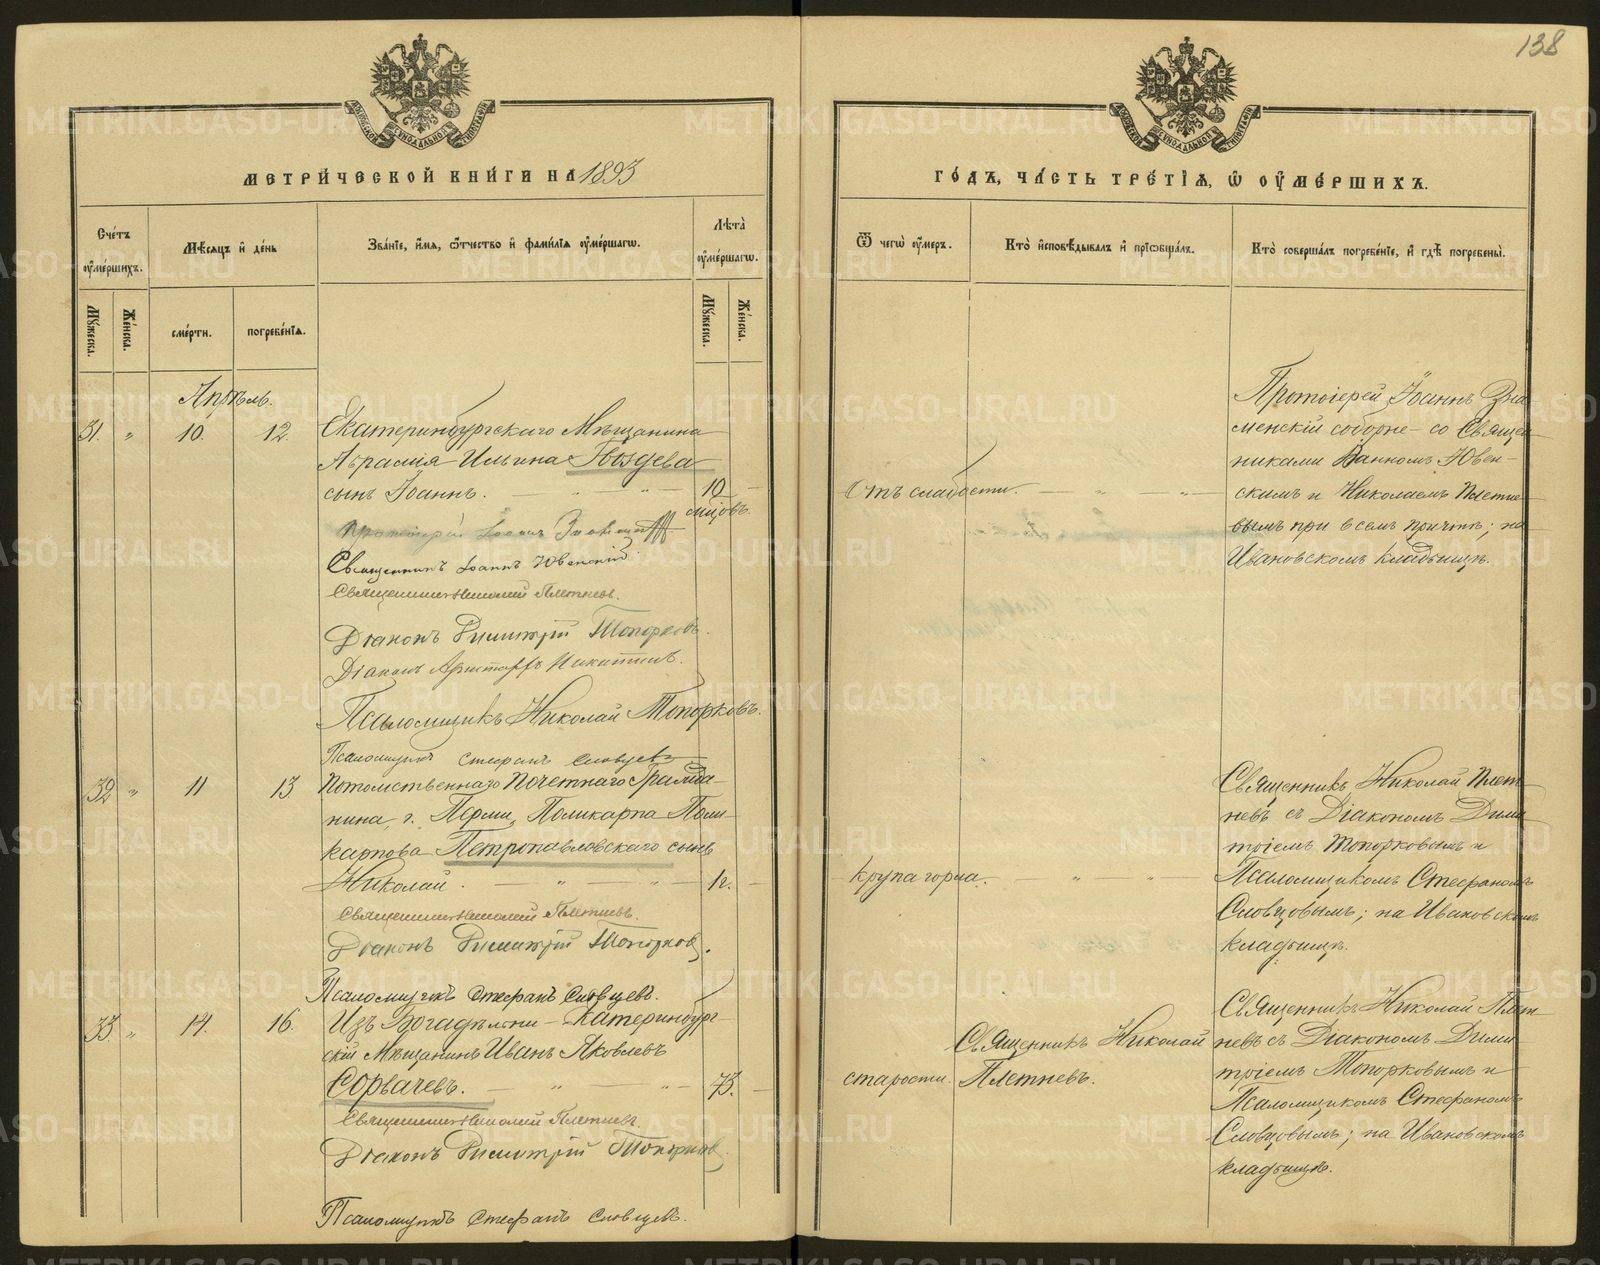 138
МЕТРИ́ЧЕСКОЙ КНИ́ГИ НА 1893
Сче́тъ ᲂу҆ме́ршихъ.
Мѣ́сяцъ и҆ де́нь
Зва́нїе, и҆́мя, ѻ҆́тчество и҆ фами́лїя ᲂу҆ме́ршагѡ.
Лѣта̀ ᲂу҆ме́ршагѡ.
Мꙋ́жеска.
Же́нска.
сме́рти.
погребе́нїя.
Мꙋ́жеска.
Же́нска.
Апрѣль.
31. " 10. 12. Екатеринбургскаго Мѣщанина
Авраамія Ильина Гвоздева
сынъ Іоаннъ. — " — " — 10 —
мѣсцовъ.
Протоіерей Іоаннъ Знаменскій
Священникъ Іоаннъ Ювенскій
Священникъ Николай Плетневъ.
Діаконъ Димитрій Топорковъ.
Діаконъ Аристархъ Никитинъ.
Псаломщикъ Николай Топорковъ.
Псаломщикъ Стефанъ Словцевъ
32. " 11 13. Потомственнаго Почетнаго Гражда-
нина, г. Перми, Поликарпа Поли-
карпова Петропавловскаго сынъ
Николай. — " — " — 1 г. —
Священникъ Николай Плетневъ.
Діаконъ Димитрій Топорковъ.
Псаломщикъ Стефанъ Словцевъ.
33. " 14. 16. Изъ Богадѣльни — Екатеринбург-
скій Мѣщанинъ Иванъ Яковлевъ
Сорвачевъ. — " — " — 73. —
Священникъ Николай Плетневъ.
Діаконъ Димитрій Топорковъ.
Псаломщикъ Стефанъ Словцевъ.
ГО́ДЪ, ЧА́СТЬ ТРЕ́ТЇѦ, Ѡ҆ ОУ҆МЕ́РШИХЪ.
Ѿ чегѡ̀ ᲂу҆́меръ.
Кто̀ и҆сповѣ́дывалъ и҆ прїѡбща́лъ.
Кто̀ соверша́лъ погребе́нїе, и҆ гдѣ̀ погребены̀.
Протоіерей Іоаннъ Зна-
менскій соборне — со Священ-
никами Іоанномъ Ювен-
Отъ слабости. — " — " — скимъ и Николаемъ Плетне-
вымъ при всемъ причтѣ; на
Ивановскомъ кладбищѣ.
Священникъ Николай Плет-
невъ съ Діакономъ Дими-
тріемъ Топорковымъ и
крупа горла. — " — " — Псаломщикомъ Стефаномъ
Словцовымъ; на Ивановскомъ
кладбищѣ.
Священникъ Николай Плет-
Священникъ Николай невъ съ Діакономъ Дими-
старости. Плетневъ. тріемъ Топорковымъ и
Псаломщикомъ Стефаномъ
Словцовымъ; на Ивановскомъ
кладбищѣ.
METRIKI.GASO-URAL.RU